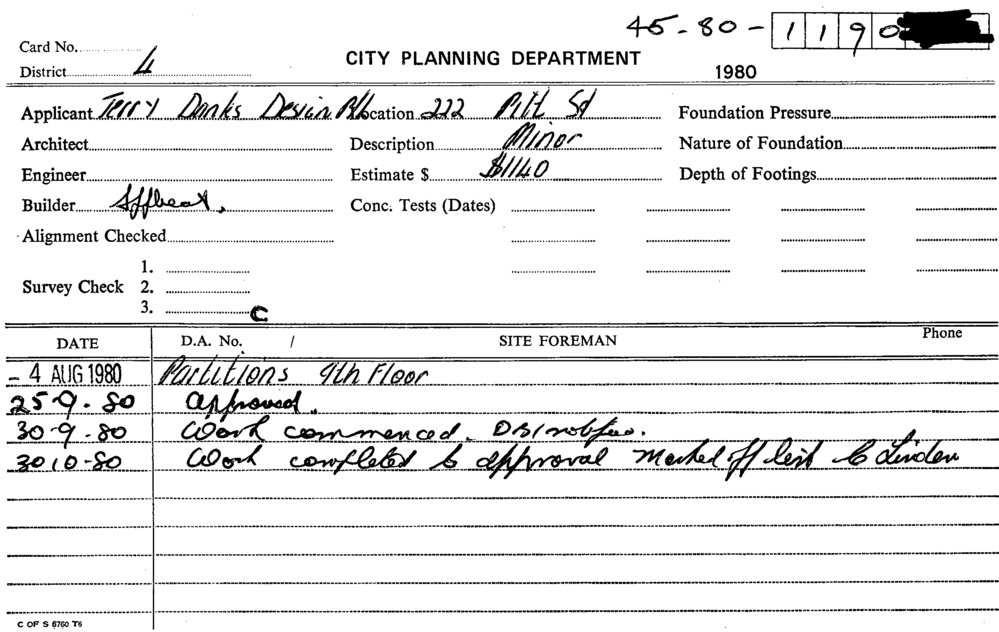 45-80-1190
Card No.
District 4
CITY PLANNING DEPARTMENT
1980
Applicant Terry Danks Design P/L Location 222 Pitt St Foundation Pressure
Architect Description Minor Nature of Foundation
Engineer Estimate $ $1140 Depth of Footings
Builder Conc. Tests (Dates)
Alignment Checked
Survey Check 1.
2.
3. C
DATE D.A. No. / SITE FOREMAN Phone
- 4 AUG 1980 Partitions 9th Floor
25-9-80 Approved.
30-9-80 Work commenced.
30 10-80 Work completed to approval Marked off list C Linden
C OF S 6760 T6